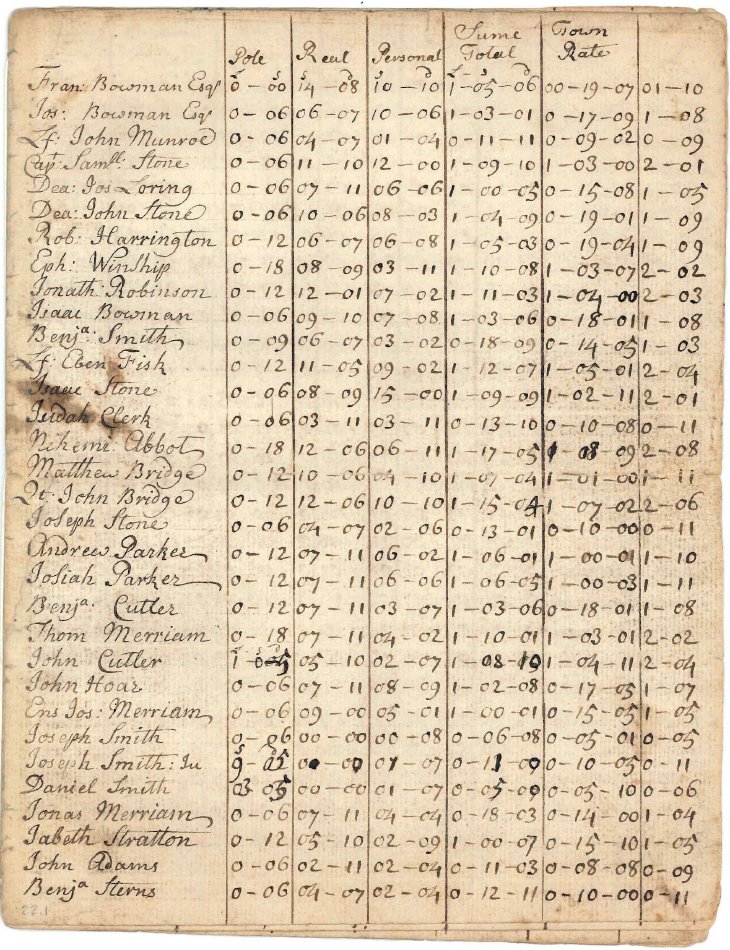 Pole Real Personal Sume Totall Town Rate
Fran: Bowman Esqr 0-00 14-08 10-10 1-05-06 00-19-07 01-10
Jos: Bowman Esqr 0-06 06-07 10-06 1-03-01 0-17-09 1-08
Lt: John Munroe 0-06 04-07 01-04 0-11-11 0-09-02 0-09
Capt: Samll: Stone 0-06 11-10 12-00 1-09-10 1-03-00 2-01
Dea: Jos Loring 0-06 07-11 06-06 1-00-05 0-15-08 1-05
Dea: John Stone 0-06 10-06 08-03 1-04-09 0-19-01 1-09
Rob: Harrington 0-12 06-07 06-08 1-05-03 0-19-04 1-09
Eph: Winship 0-18 08-09 03-11 1-10-08 1-03-07 2-02
Jonath: Robinson 0-12 12-01 07-02 1-11-03 1-04-00 2-03
Isaac Bowman 0-06 09-10 07-08 1-03-06 0-18-01 1-08
Benja: Smith 0-09 06-07 03-02 0-18-09 0-14-05 1-03
Lt: Eben Fisk 0-12 11-05 09-02 1-12-07 1-05-01 2-04
Isaac Stone 0-06 08-09 15-00 1-09-09 1-02-11 2-01
Judah Clerk 0-06 03-11 03-11 0-13-10 0-10-08 0-11
Nihemi: Abbot 0-18 12-06 06-11 1-17-05 1-08-09 2-08
Matthew Bridge 0-12 10-06 04-10 1-07-04 1-01-00 1-11
Lt: John Bridge 0-12 12-06 10-10 1-15-04 1-07-02 2-06
Joseph Stone 0-06 04-07 02-06 0-13-01 0-10-00 0-11
Andrew Parker 0-12 07-11 06-02 1-06-01 1-00-01 1-10
Josiah Parker 0-12 07-11 06-06 1-06-05 1-00-03 1-11
Benja: Cutler 0-12 07-11 03-07 1-03-06 0-18-01 1-08
Thom Merriam 0-18 07-11 04-02 1-10-01 1-03-01 2-02
John Cutler 05-10 02-07 1-08-10 1-04-11 2-04
John Hoar 0-06 07-11 08-09 1-02-08 0-17-05 1-07
Ens Jos: Merriam 0-06 09-00 05-01 1-00-01 0-15-05 1-05
Joseph Smith 0-06 00-00 00-08 0-06-08 0-05-01 0-05
Joseph Smith: Ju 00-00 07-07 0-10-05 0-11
Daniel Smith 03 05 00-00 01-07 0-05-00 0-05-10 0-06
Jonas Merriam 0-06 07-11 04-04 0-18-03 0-14-00 1-04
Jabeth Stratton 0-12 05-10 02-09 1-00-07 0-15-10 1-05
John Adams 0-06 02-11 02-04 0-11-03 0-08-08 0-09
Benja Sterns 0-06 04-07 02-04 0-12-11 0-10-00 0-11
22.1